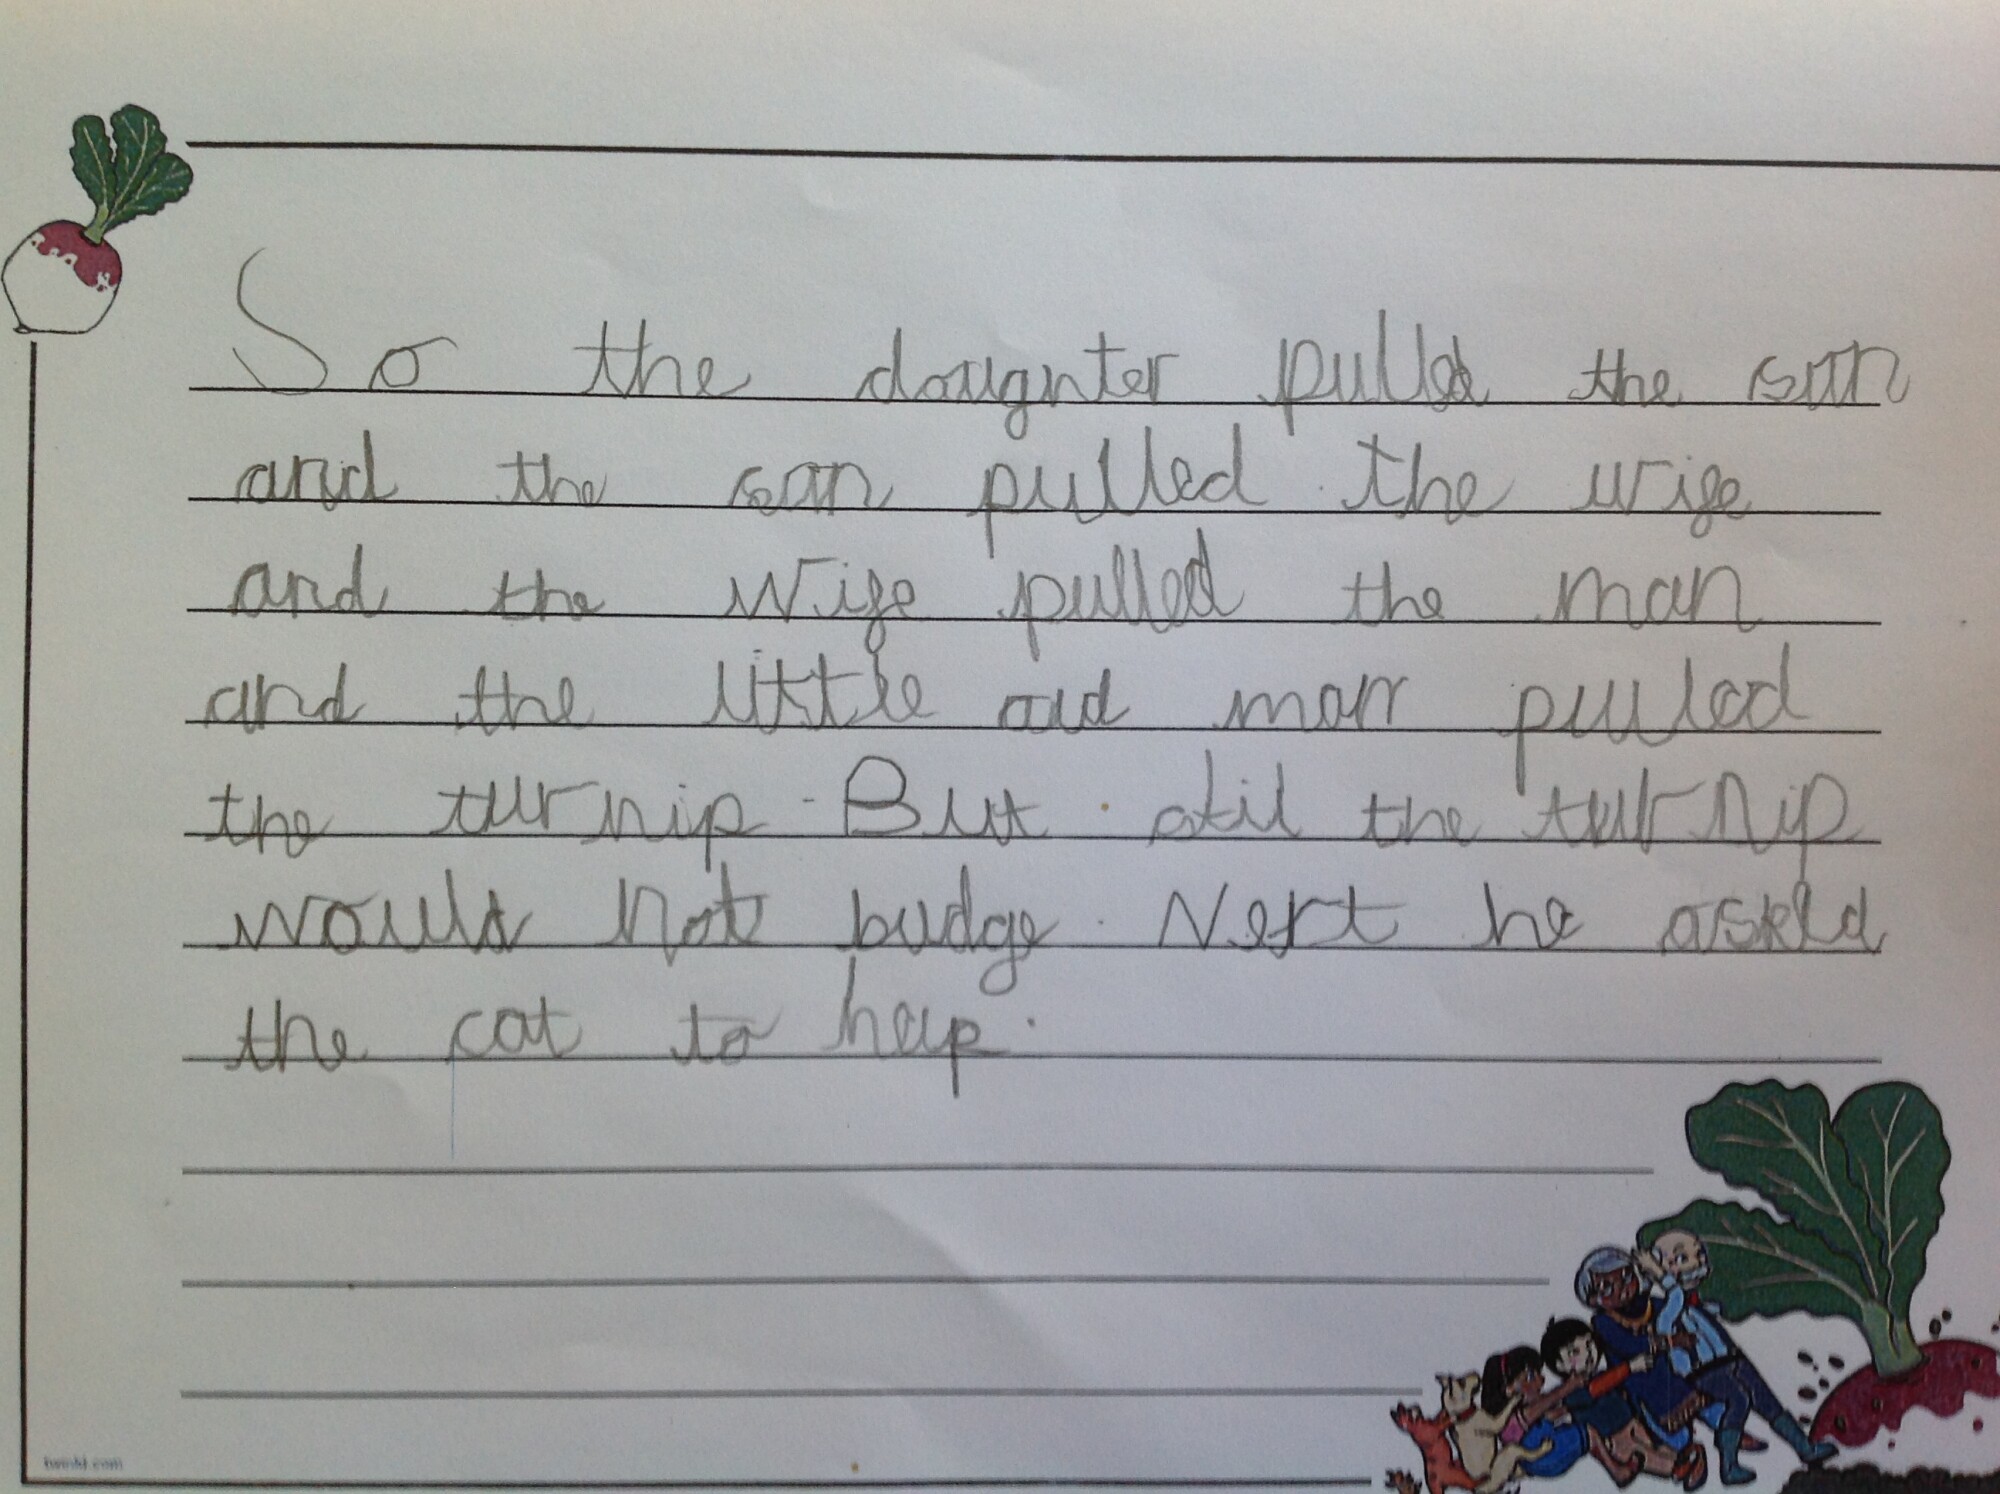 So the daughter pulled the son
and the son pulled the wife
and the wife pulled the man
and the little old man pulled
the turnip. But stil the turnip
would not budge. Next he asked
the cat to help.
twinkl.com